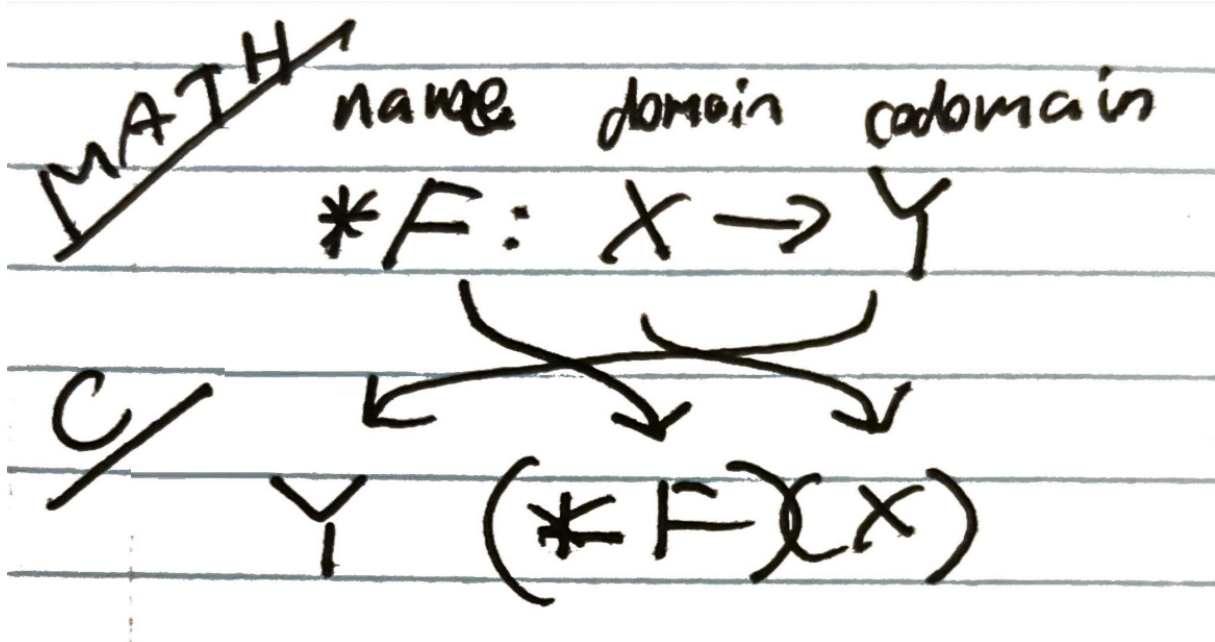 MATH
name domain codomain
*F: X → Y
C
Y (*F)(X)